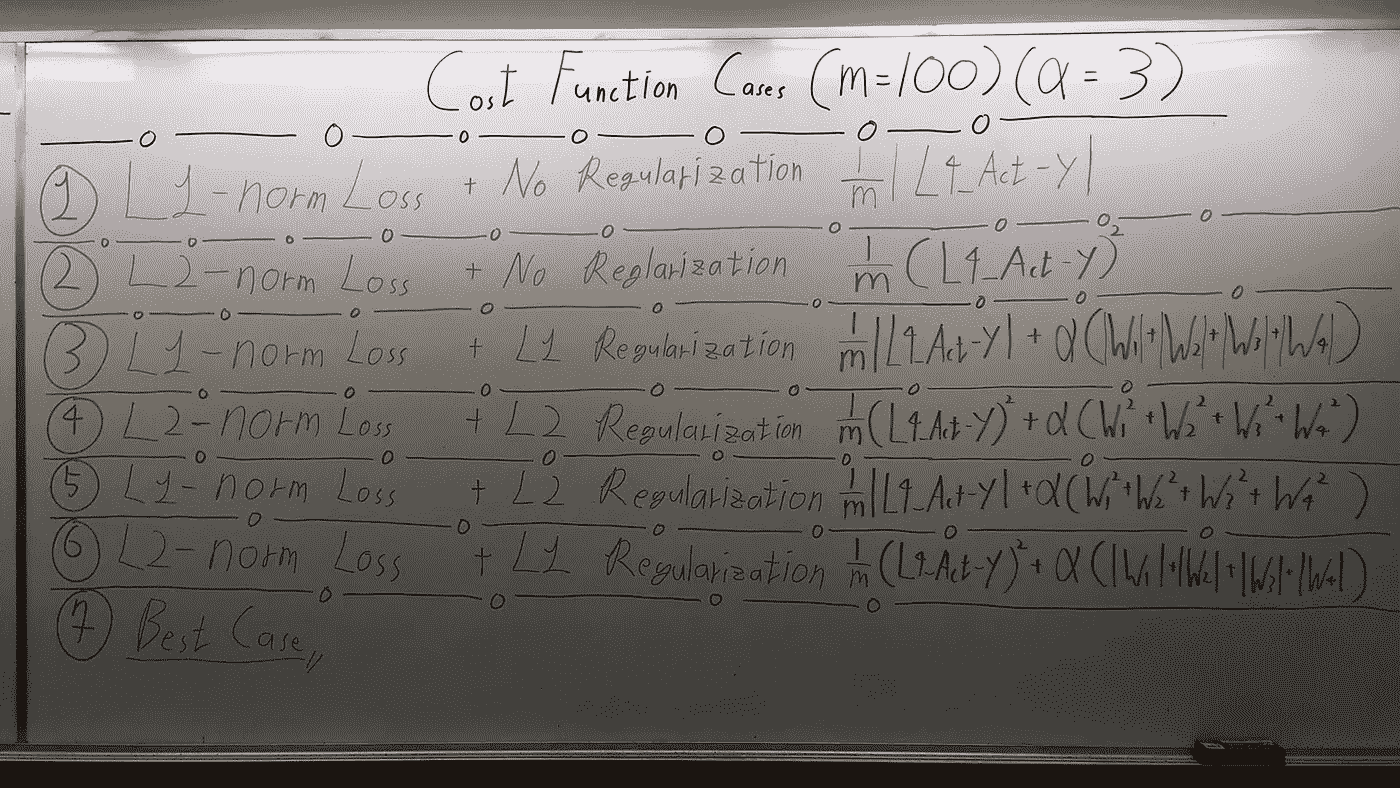 Cost Function Cases (m=100)(α = 3)
① L1-norm Loss + No Regularization 1/m |L4_Act-Y|
② L2-norm Loss + No Reglarization 1/m (L4_Act-Y)²
③ L1-norm Loss + L1 Regularization 1/m |L4_Act-Y| + α(|W₁|+|W₂|+|W₃|+|W₄|)
④ L2-norm Loss + L2 Regularization 1/m (L4_Act-Y)² + α(W₁² + W₂² + W₃² + W₄²)
⑤ L1-norm Loss + L2 Regularization 1/m |L4_Act-Y| + α(W₁² + W₂² + W₃² + W₄²)
⑥ L2-norm Loss + L1 Regularization 1/m (L4_Act-Y)² + α(|W₁|+|W₂|+|W₃|+|W₄|)
⑦ Best Case,,